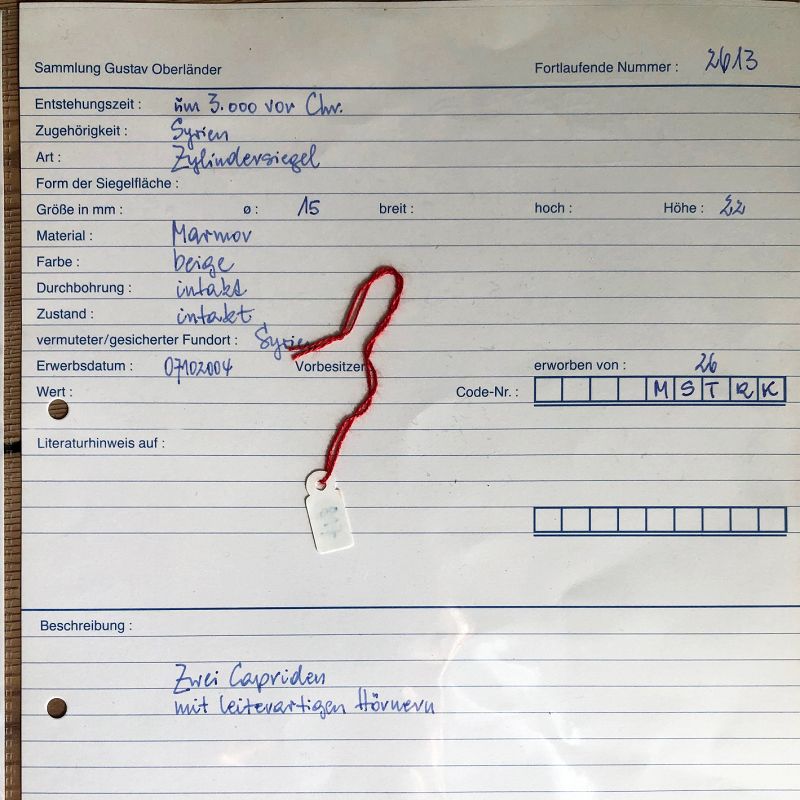 Sammlung Gustav Oberländer Fortlaufende Nummer : 2613
Entstehungszeit : um 3.000 vor Chr.
Zugehörigkeit : Syrien
Art : Zylindersiegel
Form der Siegelfläche :
Größe in mm : ø : 15 breit : hoch : Höhe : 22
Material : Marmor
Farbe : beige
Durchbohrung : intakt
Zustand : intakt
vermuteter/gesicherter Fundort : Syrien
Erwerbsdatum : 07102004 Vorbesitzer erworben von : 26
Wert : Code-Nr. : M S T R K
Literaturhinweis auf :
Beschreibung :
Zwei Capriden
mit leiterartigen Hörnern